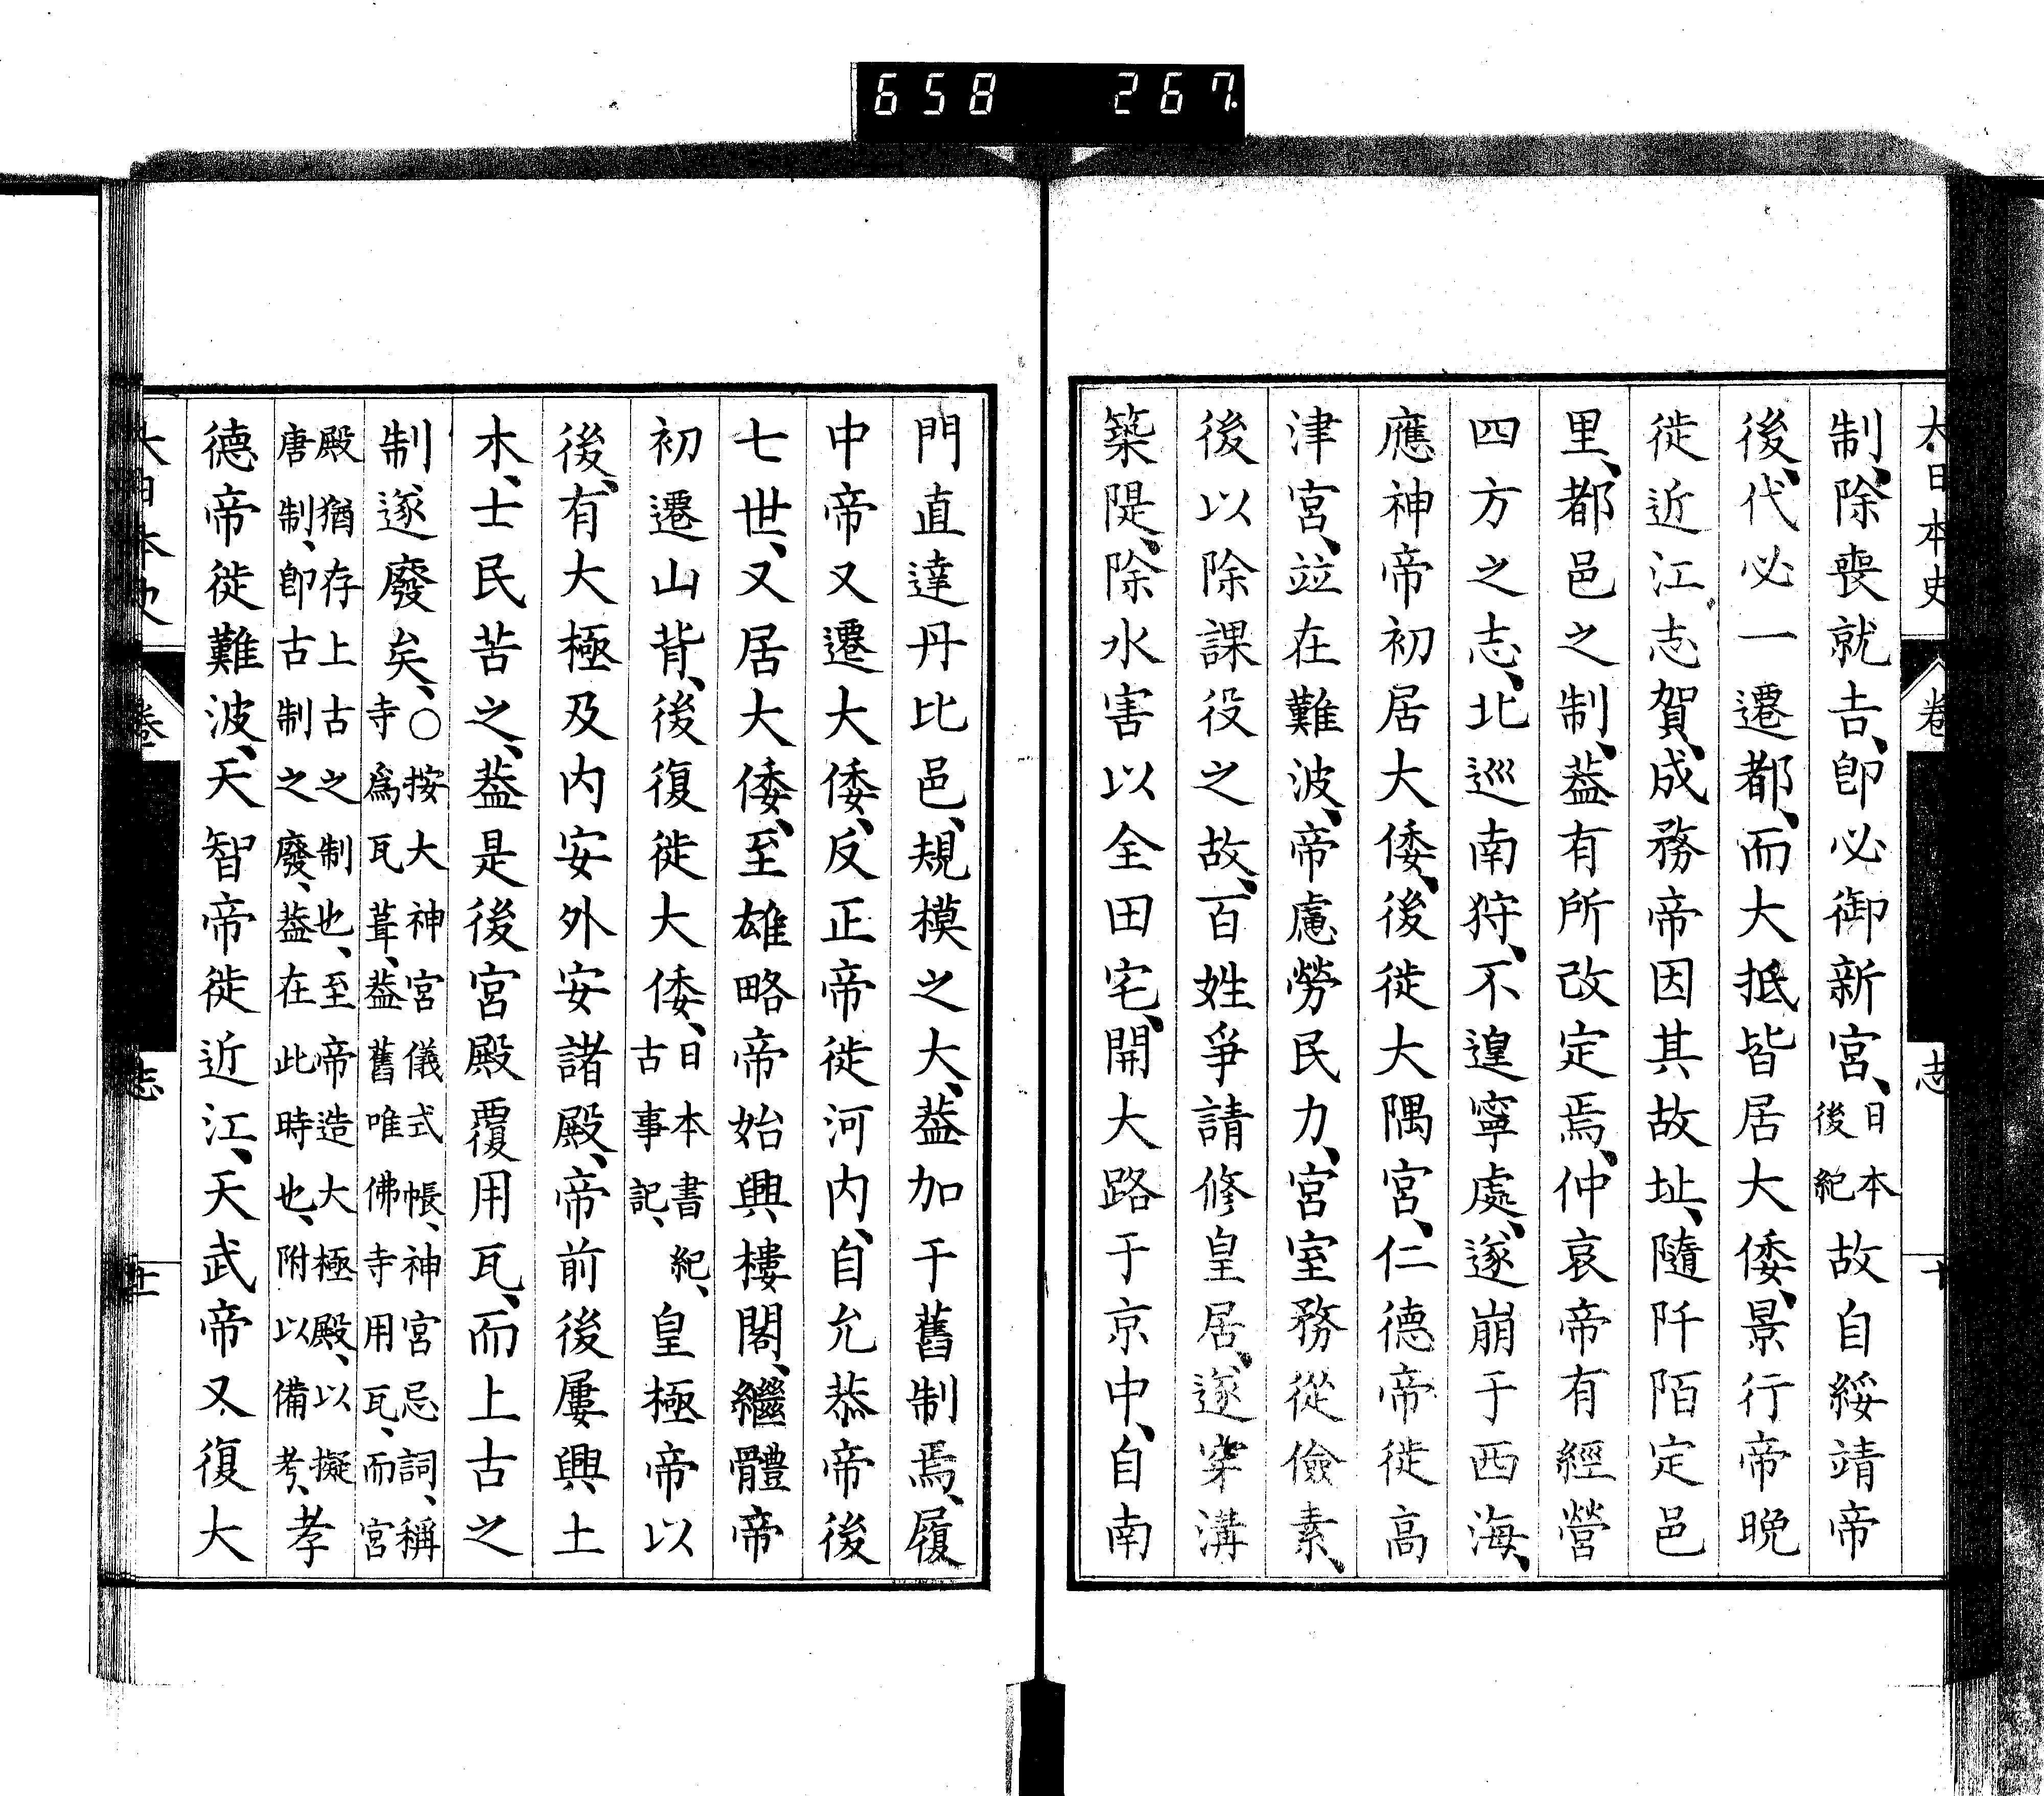 658 267
大日本史 卷 志 十
制、除喪就吉、卽必御新宮、日本後紀故自綏靖帝
後、代必一遷都、而大抵皆居大倭、景行帝晚
徙近江志賀、成務帝因其故址、隨阡陌定邑
里、都邑之制、葢有所改定焉、仲哀帝有經營
四方之志、北巡南狩、不遑寧處、遂崩于西海、
應神帝初居大倭、後徙大隅宮、仁德帝徙高
津宮、竝在難波、帝慮勞民力、宮室務從儉素、
後以除課役之故、百姓爭請修皇居、遂穿溝
築隄、除水害以全田宅、開大路于京中、自南
門直達丹比邑、規模之大、葢加于舊制焉、履
中帝又遷大倭、反正帝徙河內、自允恭帝後
七世、又居大倭、至雄略帝始興樓閣、繼體帝
初遷山背、後復徙大倭、日本書紀、古事記、皇極帝以
後、有大極及内安外安諸殿、帝前後屢興土
木、士民苦之、葢是後宮殿覆用瓦、而上古之
制遂廢矣、○按大神宮儀式帳、神宮忌詞、稱寺爲瓦葺、葢舊唯佛寺用瓦、而宮
殿猶存上古之制也、至帝造大極殿、以擬唐制、卽古制之廢、葢在此時也、附以備考、孝
德帝徙難波、天智帝徙近江、天武帝又復大
大日本史 卷 志 十一